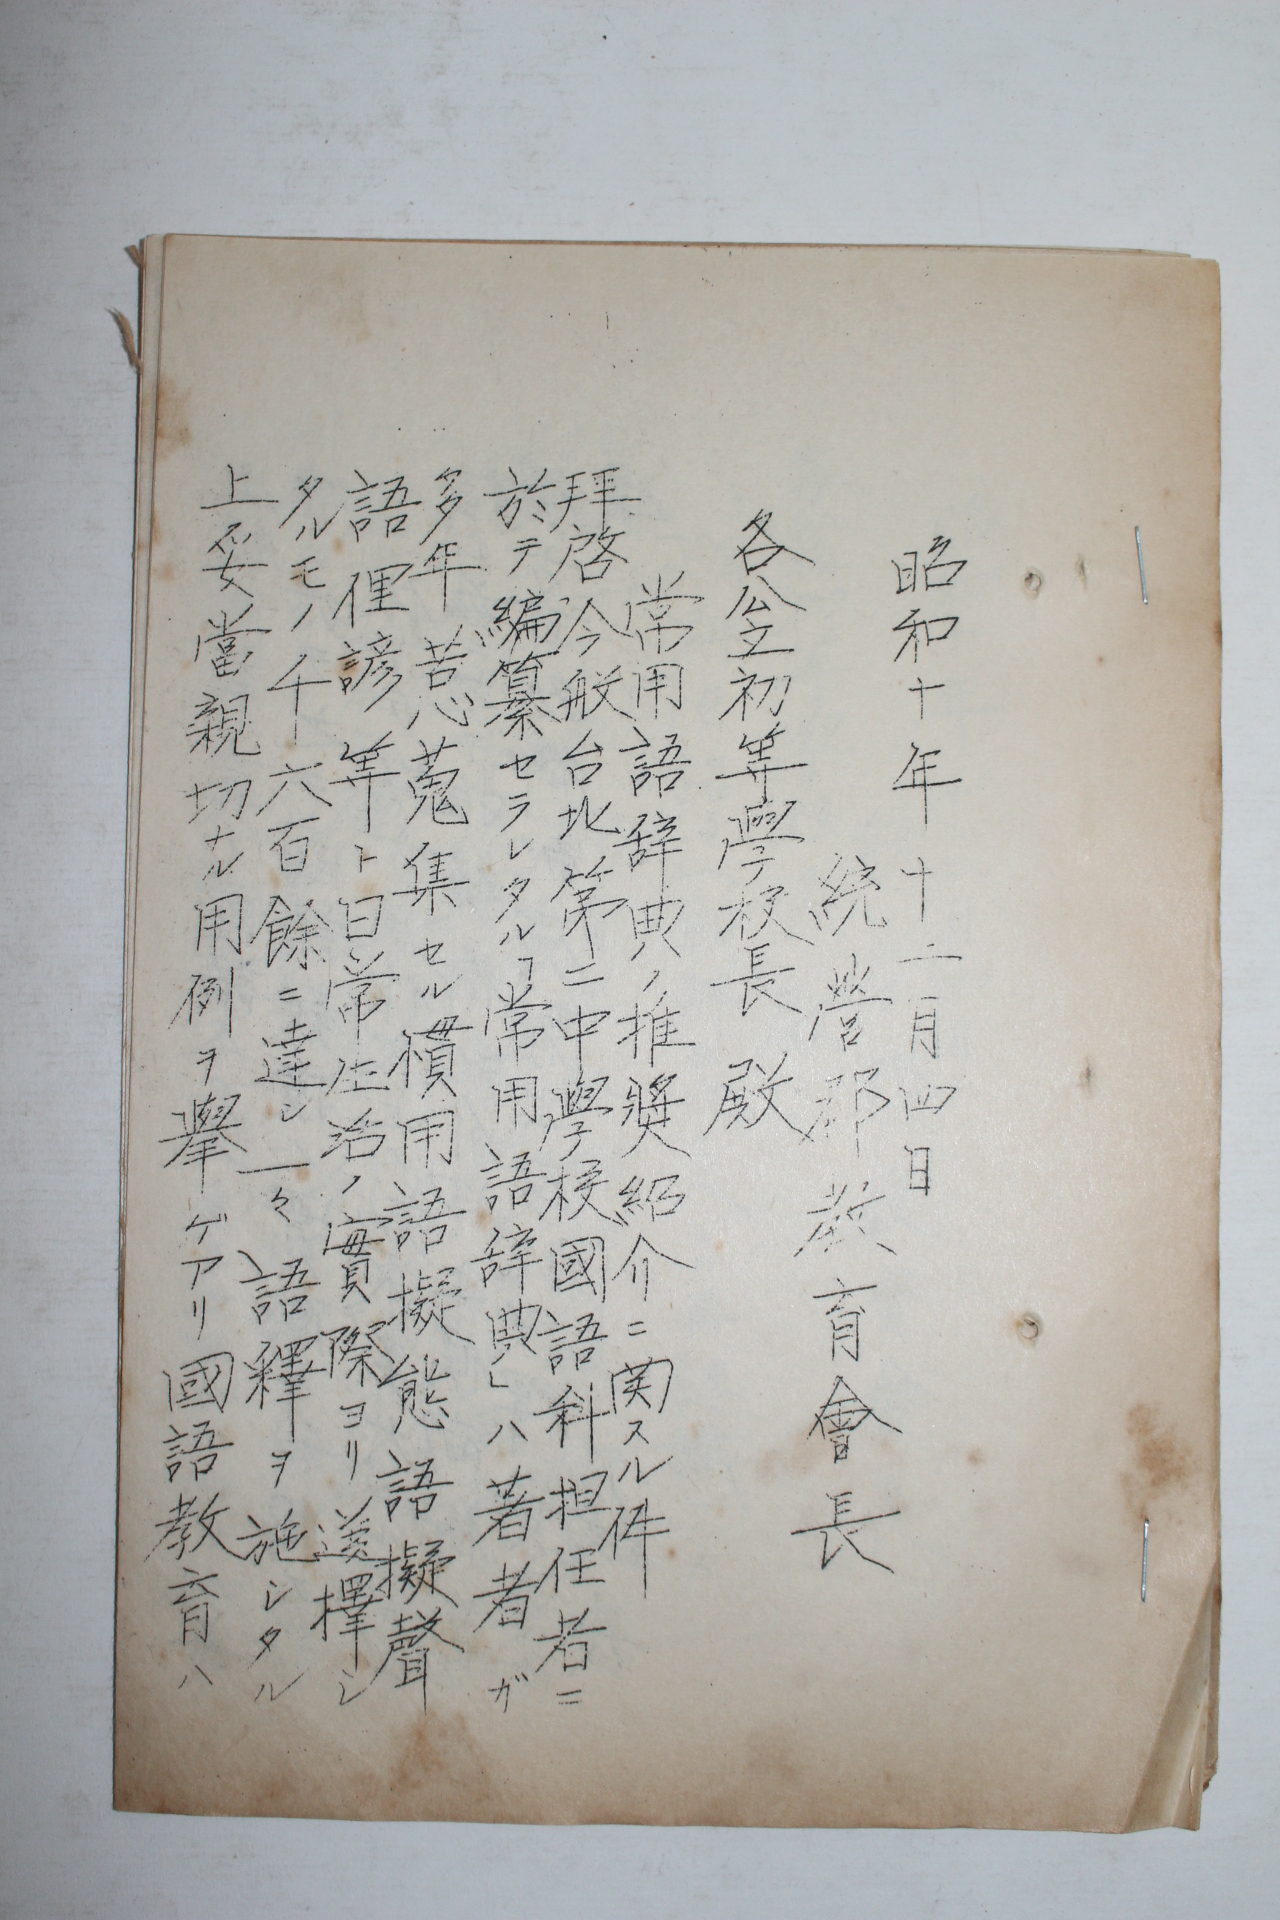 昭和十年十二月四日
統營郡教育會長
各公立初等學校長 殿
常用語辞典ノ推奨紹介ニ関スル件
拝啓今般台北第二中學校國語科担任者ニ
於テ編纂セラレタル「常用語辞典」ハ著者ガ
多年苦心蒐集セル慣用語擬態語擬聲
語俚諺等ト日常生活ノ實際ヨリ選擇シ
タルモノ千六百餘ニ達シ一々語釋ヲ施シタル
上妥當親切ナル用例ヲ擧ゲアリ國語教育ハ